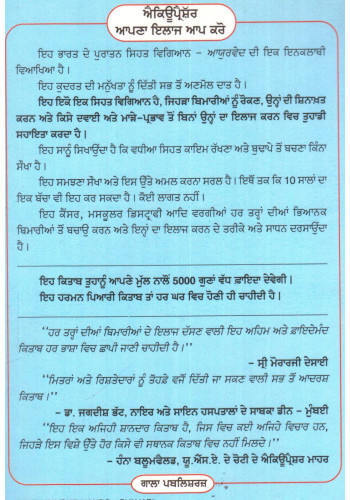 ਐਕਿਊਪ੍ਰੈਸ਼ੱਰ
ਆਪਣਾ ਇਲਾਜ ਆਪ ਕਰੋ
ਇਹ ਭਾਰਤ ਦੇ ਪੁਰਾਤਨ ਸਿਹਤ ਵਿਗਿਆਨ – ਆਯੁਰਵੇਦ ਦੀ ਇਕ ਇਨਕਲਾਬੀ
ਵਿਆਖਿਆ ਹੈ।
ਇਹ ਕੁਦਰਤ ਦੀ ਮਨੁੱਖਤਾ ਨੂੰ ਦਿੱਤੀ ਸਭ ਤੋਂ ਅਣਮੋਲ ਦਾਤ ਹੈ।
ਇਹ ਇਕੋ ਇਕ ਸਿਹਤ ਵਿਗਿਆਨ ਹੈ, ਜਿਹੜਾ ਬਿਮਾਰੀਆਂ ਨੂੰ ਰੋਕਣ, ਉਨ੍ਹਾਂ ਦੀ ਸ਼ਿਨਾਖ਼ਤ
ਕਰਨ ਅਤੇ ਕਿਸੇ ਦਵਾਈ ਅਤੇ ਮਾੜੇ-ਪ੍ਰਭਾਵ ਤੋਂ ਬਿਨਾਂ ਉਨ੍ਹਾਂ ਦਾ ਇਲਾਜ ਕਰਨ ਵਿਚ ਤੁਹਾਡੀ
ਸਹਾਇਤਾ ਕਰਦਾ ਹੈ।
ਇਹ ਸਾਨੂੰ ਸਿਖਾਉਂਦਾ ਹੈ ਕਿ ਵਧੀਆ ਸਿਹਤ ਕਾਇਮ ਰੱਖਣਾ ਅਤੇ ਬੁਢਾਪੇ ਤੋਂ ਬਚਣਾ ਕਿੰਨਾ
ਸੌਖਾ ਹੈ।
ਇਹ ਸਮਝਣਾ ਸੌਖਾ ਅਤੇ ਇਸ ਉੱਤੇ ਅਮਲ ਕਰਨਾ ਸਰਲ ਹੈ। ਇਥੋਂ ਤਕ ਕਿ 10 ਸਾਲਾਂ ਦਾ
ਇਕ ਬੱਚਾ ਵੀ ਇਹ ਕਰ ਸਕਦਾ ਹੈ। ਕੋਈ ਲਾਗਤ ਨਹੀਂ।
ਇਹ ਕੈਂਸਰ, ਮਸਕੂਲਰ ਡਿਸਟ੍ਰਾਫੀ ਆਦਿ ਵਰਗੀਆਂ ਹਰ ਤਰ੍ਹਾਂ ਦੀਆਂ ਭਿਆਨਕ
ਬਿਮਾਰੀਆਂ ਤੋਂ ਬਚਾਉ ਕਰਨ ਅਤੇ ਇਨ੍ਹਾਂ ਦਾ ਇਲਾਜ ਕਰਨ ਦੇ ਤਰੀਕੇ ਅਤੇ ਸਾਧਨ ਦਰਸਾਉਂਦਾ
ਹੈ।
ਇਹ ਕਿਤਾਬ ਤੁਹਾਨੂੰ ਆਪਣੇ ਮੁੱਲ ਨਾਲੋਂ 5000 ਗੁਣਾਂ ਵੱਧ ਫ਼ਾਇਦਾ ਦੇਵੇਗੀ।
ਇਹ ਹਰਮਨ ਪਿਆਰੀ ਕਿਤਾਬ ਤਾਂ ਹਰ ਘਰ ਵਿਚ ਹੋਣੀ ਹੀ ਚਾਹੀਦੀ ਹੈ।
''ਹਰ ਤਰ੍ਹਾਂ ਦੀਆਂ ਬਿਮਾਰੀਆਂ ਦੇ ਇਲਾਜ ਦੱਸਣ ਵਾਲੀ ਇਹ ਅਹਿਮ ਅਤੇ ਫ਼ਾਇਦੇਮੰਦ
ਕਿਤਾਬ ਹਰ ਭਾਸ਼ਾ ਵਿਚ ਛਾਪੀ ਜਾਣੀ ਚਾਹੀਦੀ ਹੈ।''
– ਸ੍ਰੀ ਮੋਰਾਰਜੀ ਦੇਸਾਈ
''ਮਿਤਰਾਂ ਅਤੇ ਰਿਸ਼ਤੇਦਾਰਾਂ ਨੂੰ ਤੋਹਫ਼ੇ ਵਜੋਂ ਦਿੱਤੀ ਜਾ ਸਕਣ ਵਾਲੀ ਸਭ ਤੋਂ ਆਦਰਸ਼
ਕਿਤਾਬ।''
– ਡਾ. ਜਗਦੀਸ਼ ਭੱਟ, ਨਾਇਰ ਅਤੇ ਸਾਇਨ ਹਸਪਤਾਲਾਂ ਦੇ ਸਾਬਕਾ ਡੀਨ – ਮੁੰਬਈ
''ਇਹ ਇਕ ਅਜਿਹੀ ਸ਼ਾਨਦਾਰ ਕਿਤਾਬ ਹੈ, ਜਿਸ ਵਿਚ ਕਈ ਅਜਿਹੇ ਵਿਚਾਰ ਹਨ,
ਜਿਹੜੇ ਇਸ ਵਿਸ਼ੇ ਉਤੇ ਹੋਰ ਕਿਸੇ ਵੀ ਸਥਾਨਕ ਕਿਤਾਬ ਵਿਚ ਨਹੀਂ ਮਿਲਦੇ।''
– ਹੰਨਾ ਬਲੂਮਵੈਲਡ, ਯੂ.ਐੱਸ.ਏ. ਦੇ ਚੋਟੀ ਦੇ ਐਕਿਊਪ੍ਰੈਸ਼ਰ ਮਾਹਰ
ਗਾਲਾ ਪਬਲਿਸ਼ਰਜ਼